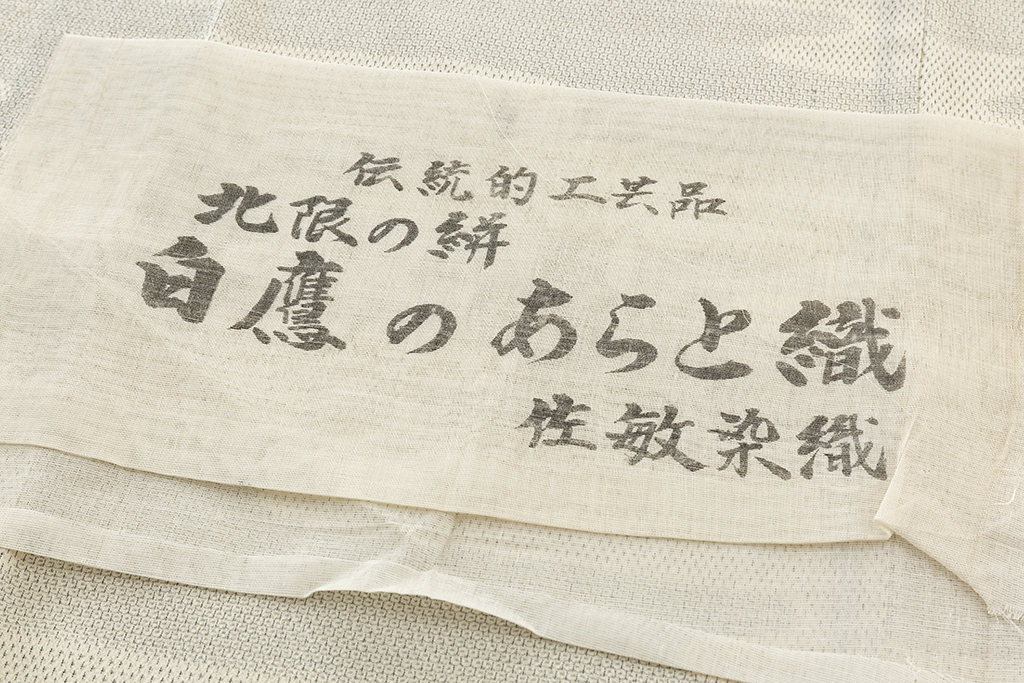 伝統的工芸品
北限の絣
白鷹のあらと織
佐敏染織